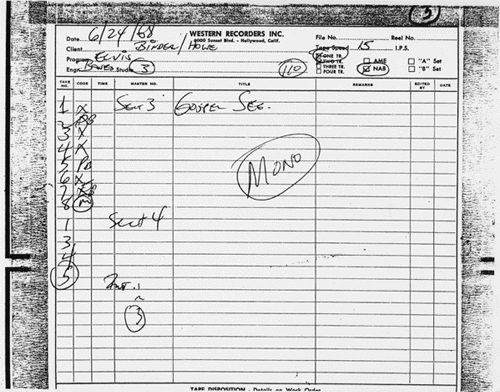 5
Date 6/24/68 WESTERN RECORDERS INC. File No. Reel No.
6000 Sunset Blvd. - Hollywood, Calif.
Client BINDER/HOWE Tape Speed 15 I.P.S.
Program ELVIS ONE TR. AME "A" Set
TWO TR.
Engr. Studio 3 110 THREE TR. NAB "B" Set
FOUR TR.
TAKE NO. CODE TIME MASTER NO. TITLE REMARKS EDITED BY DATE
1 X Sect 3 GOSPEL SEG.
2
3 X
4 X MONO
5 PB
6 X
7
8 m
1 Sect 4
3
4
5
1
~
3
TAPE DISPOSITION - Details on Work Order